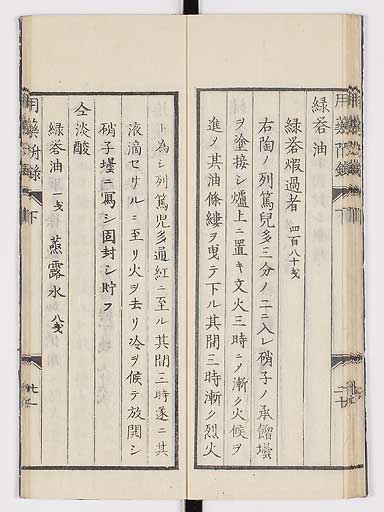 緑礬油
緑礬煆過者 四百八十戔
右陶ノ列篤児多三分ノ二ニ入レ硝子ノ承餾壜
ヲ塗接シ爐上ニ置キ文火三時ニノ漸ク火候ヲ
進ノ其油條縷ヲ曳テ下ル其間三時漸ク烈火
ト為シ列篤児多通紅ニ至ル其間三時遂ニ其
液滴セサルニ至リ火ヲ去リ冷ヲ候テ放開シ
硝子壜ニ寫シ固封シ貯フ
仝淡酸
緑礬油 一戔 蒸露水 八戔
下